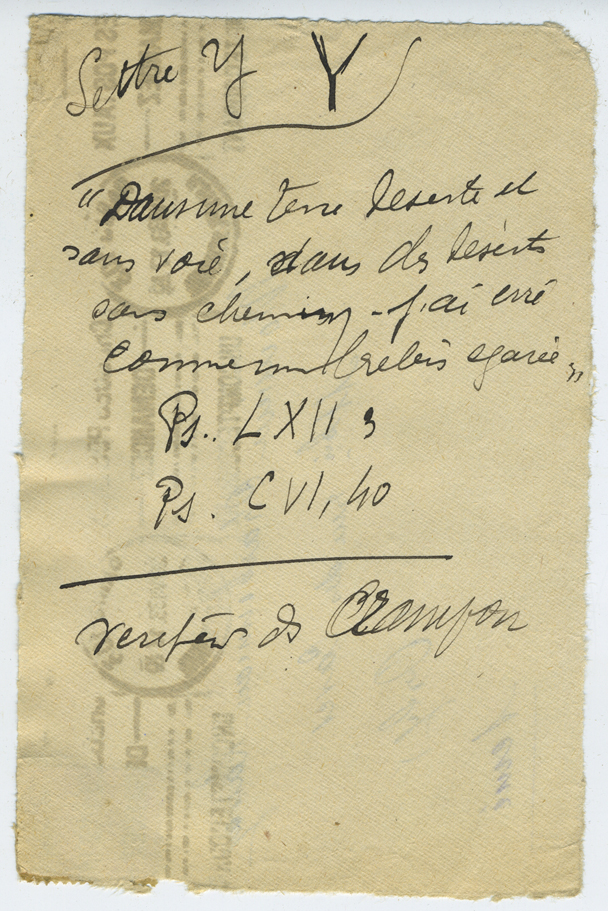 Lettre Y Y
" Dans une terre deserte et
sans voie, dans des déserts
sans chemin - j'ai erré
comme une brebis egarée "
Ps. LXII 3
Ps. CVI, 40
de Crampon